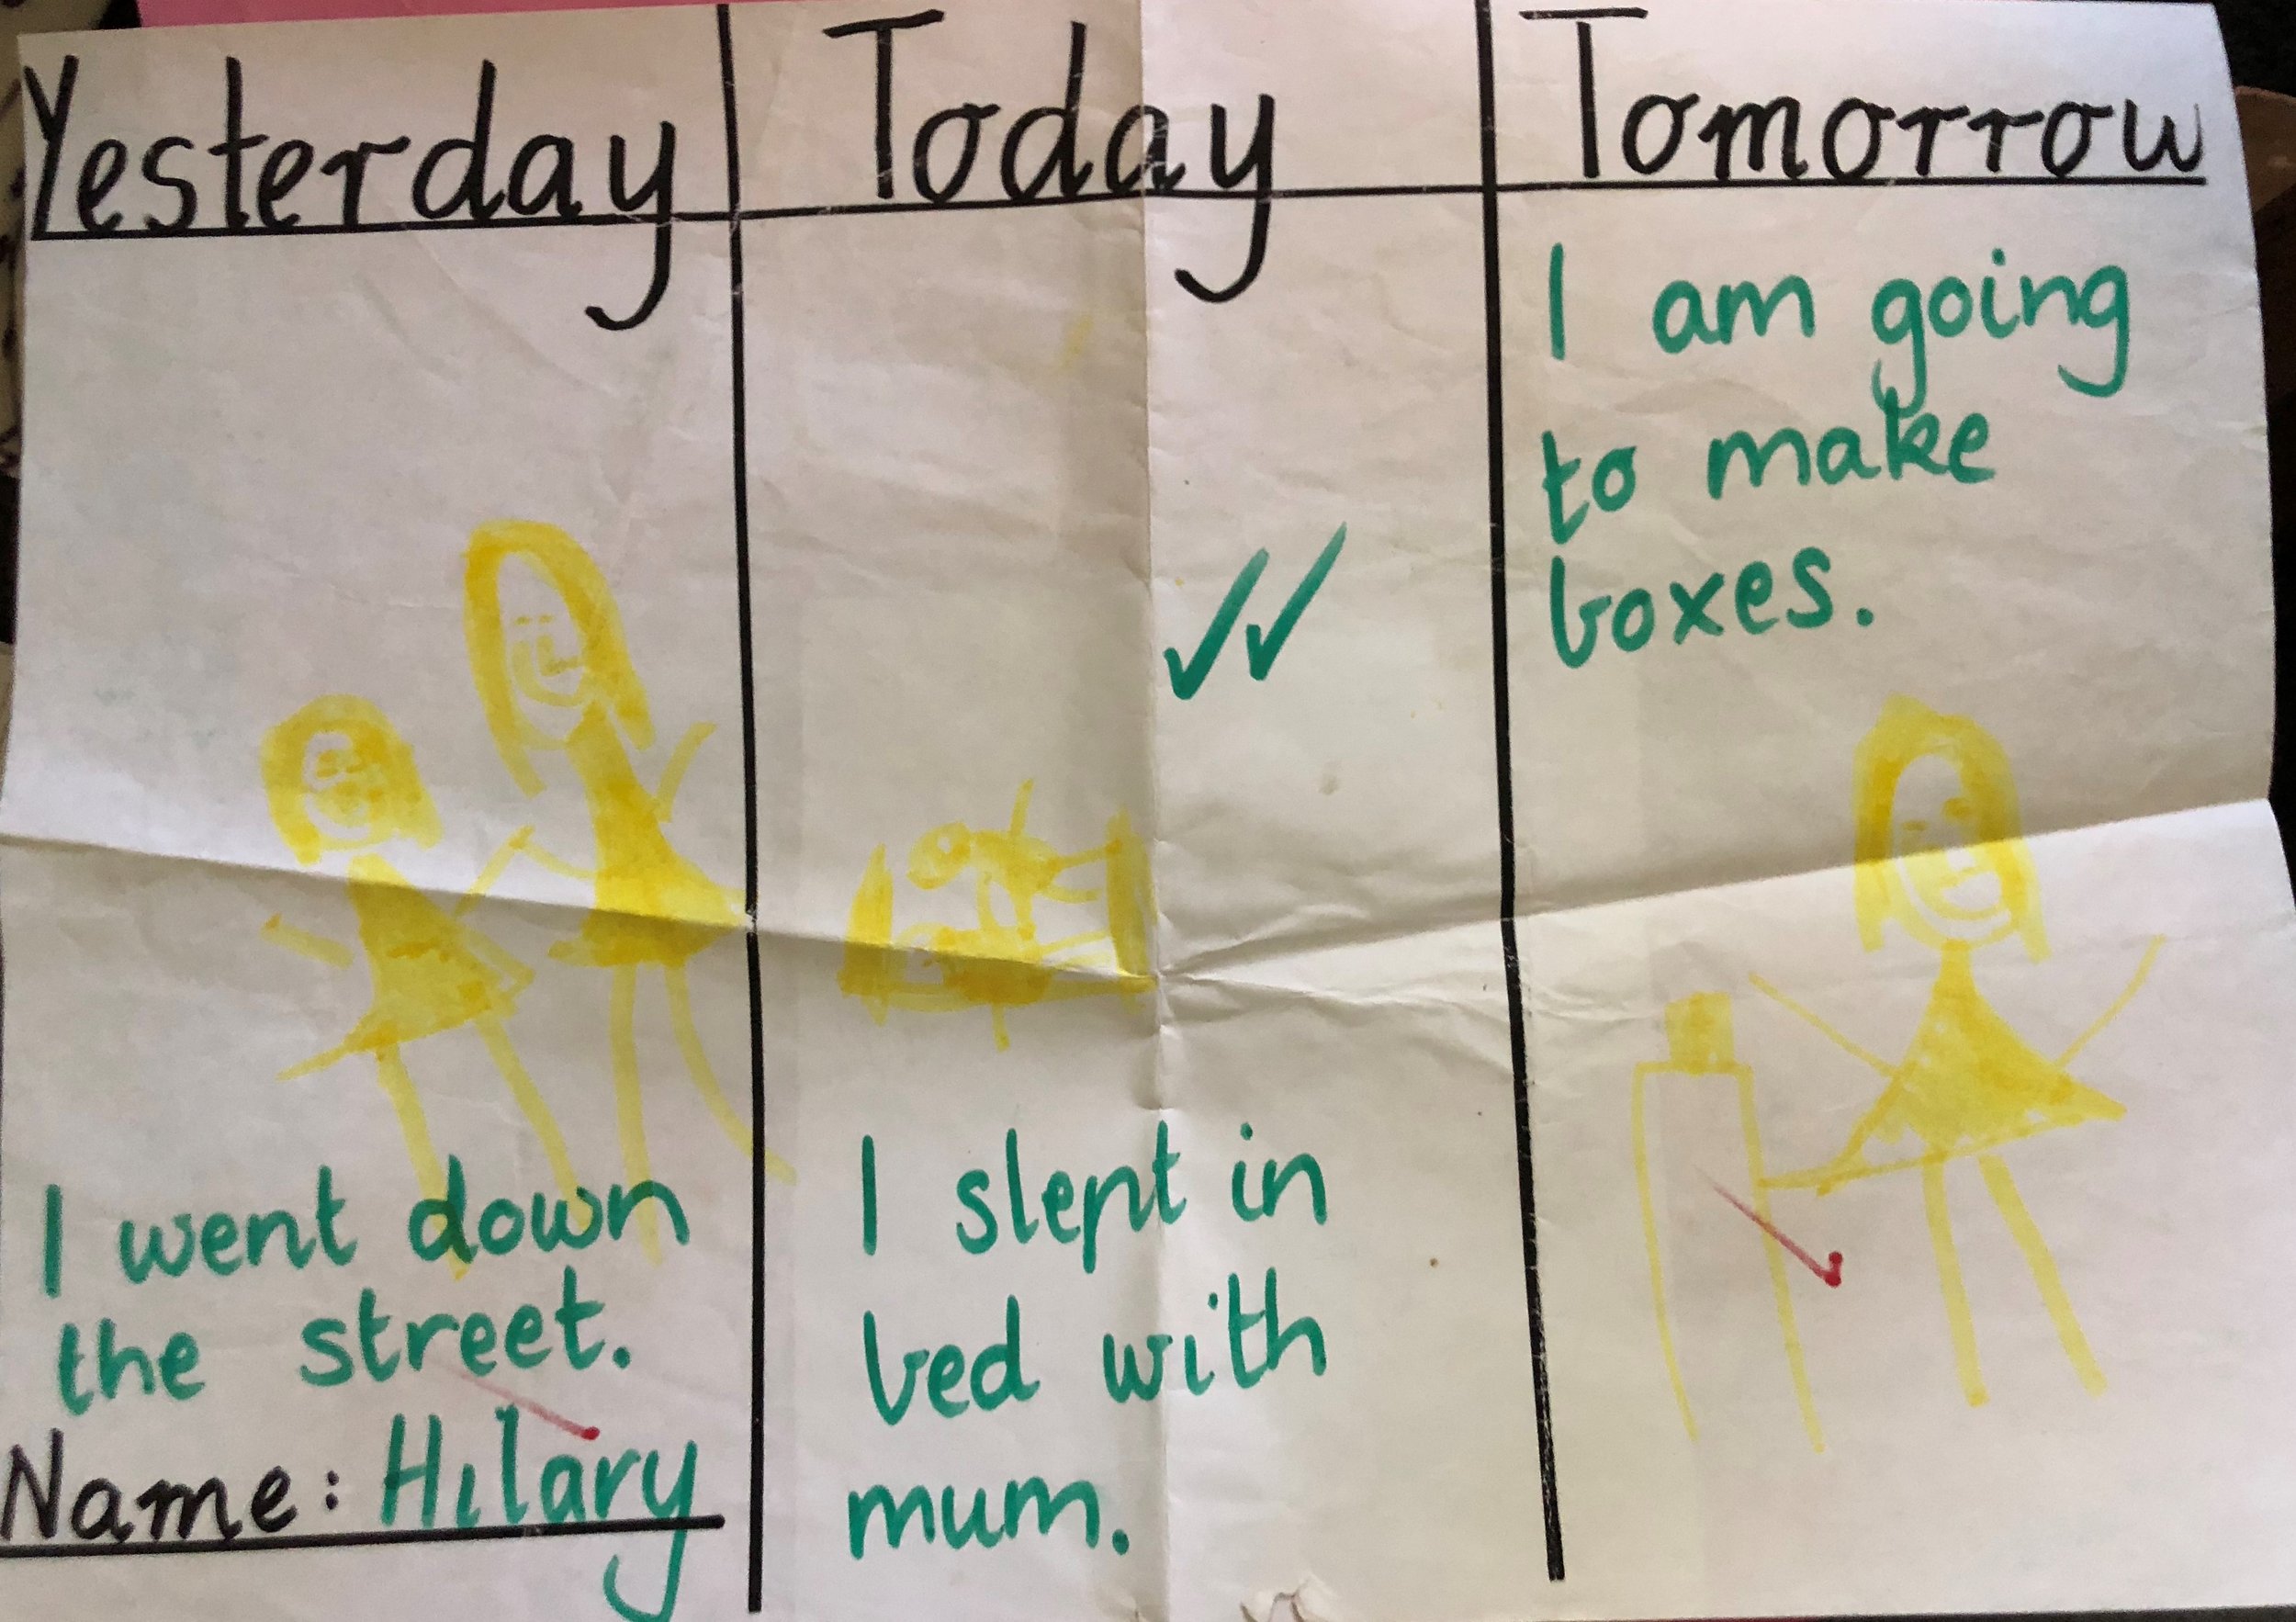 Yesterday
I went down
the street.
Name: Hilary
Today
I slept in
bed with
mum.
Tomorrow
I am going
to make
boxes.